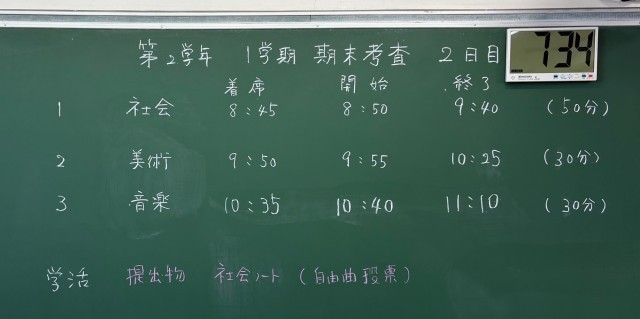 第2学年 1学期 期末考査 2日目 7:34
着席 開始 終了
1 社会 8:45 8:50 9:40 (50分)
2 美術 9:50 9:55 10:25 (30分)
3 音楽 10:35 10:40 11:10 (30分)
学活 提出物 社会ノート (自由曲投票)